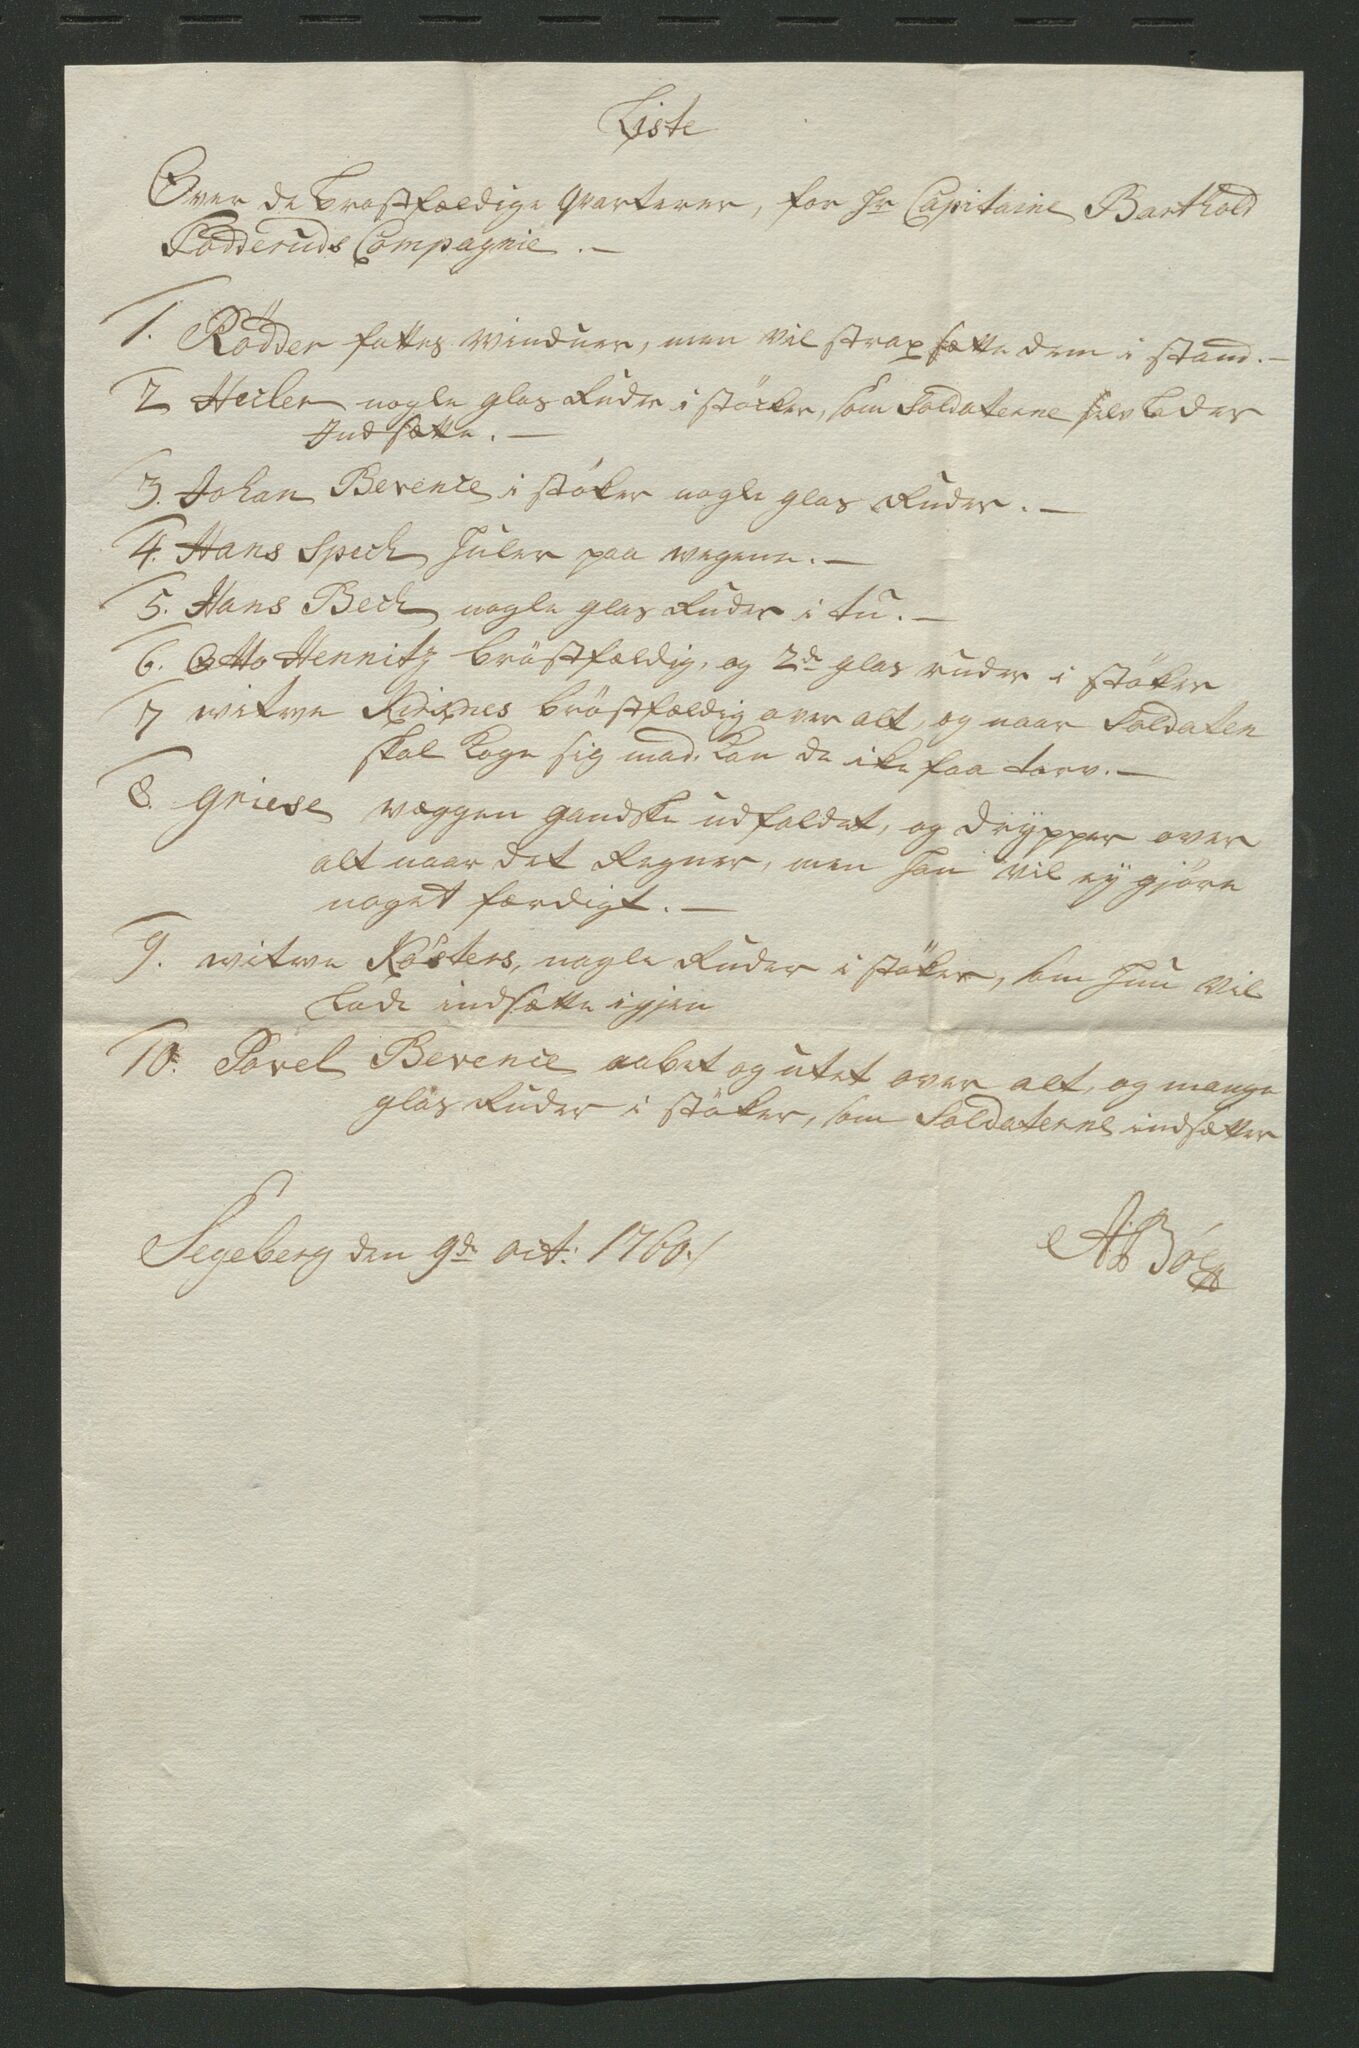 Liste
Over de brøstfældige qvarterer, for Hr Capitaine Barthold
Lødderuds Compagnie. —
1. Rödder fattes winduer, men vil strax sætte dem i stand. —
2 Heiler nogle glas Ruder i stöcker, som Soldaterne selv lader
Indsætte. —
3. Johan Berence i stöker nogle glas Ruder. —
4. Hans Speck huler paa wegene. —
5. Hans Beck nogle glas Ruder i tu. —
6. Otto Hennitz bröstfældig, og 2de glas ruder i stöker
7 witwe bröstfældig over alt, og naar Soldaten
skal koge sig mad, kan de ike faa torv. —
8. Griese væggen gandske udfaldet, og drypper over
alt naar det Regner, men han vil ey gjöre
noget færdigt. —
9. witwe Kösters, nogle Ruder i stöker, som hun vil
lade indsætte igjen
10. Povel Berence aabet og utet over alt, og mange
glas Ruder i stöker, som Soldaterne indsætter
Segeberg den 9de oct: 1760./